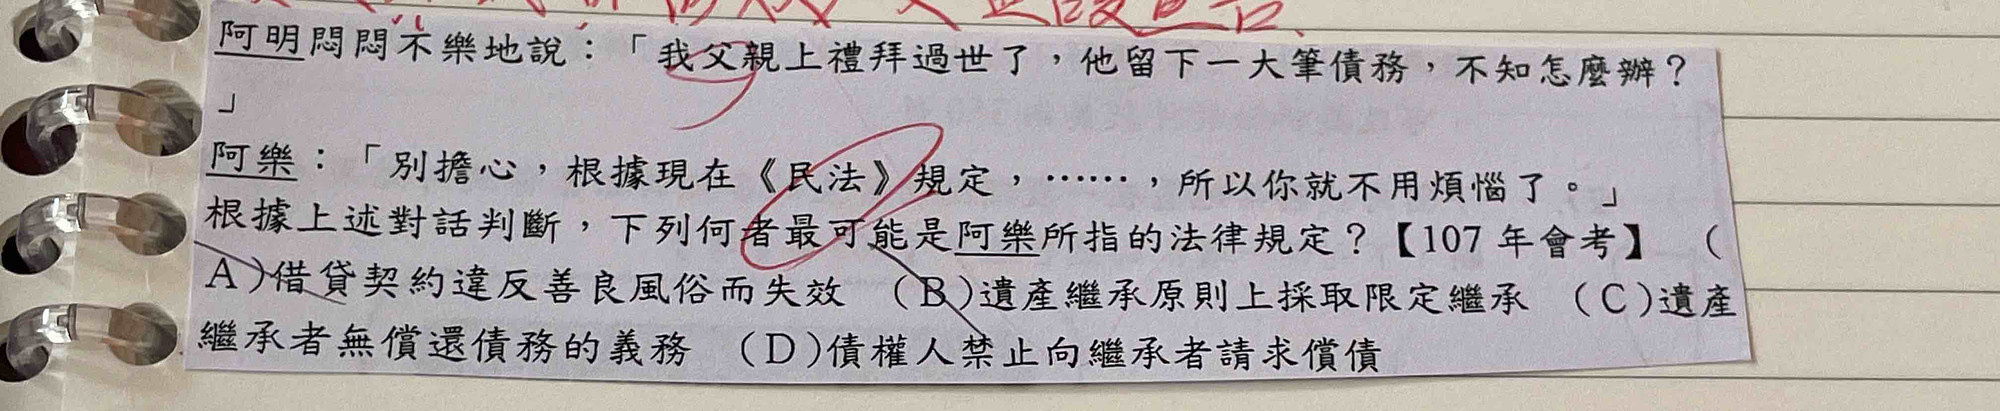 阿明悶悶不樂地說：「我父親上禮拜過世了，他留下一大筆債務，不知怎麼辦？
」
阿樂：「別擔心，根據現在《民法》規定，……，所以你就不用煩惱了。」
根據上述對話判斷，下列何者最可能是阿樂所指的法律規定？【107 年會考】 （
A）借貸契約違反善良風俗而失效 （B）遺產繼承原則上採取限定繼承 （C）遺產
繼承者無償還債務的義務 （D）債權人禁止向繼承者請求償債